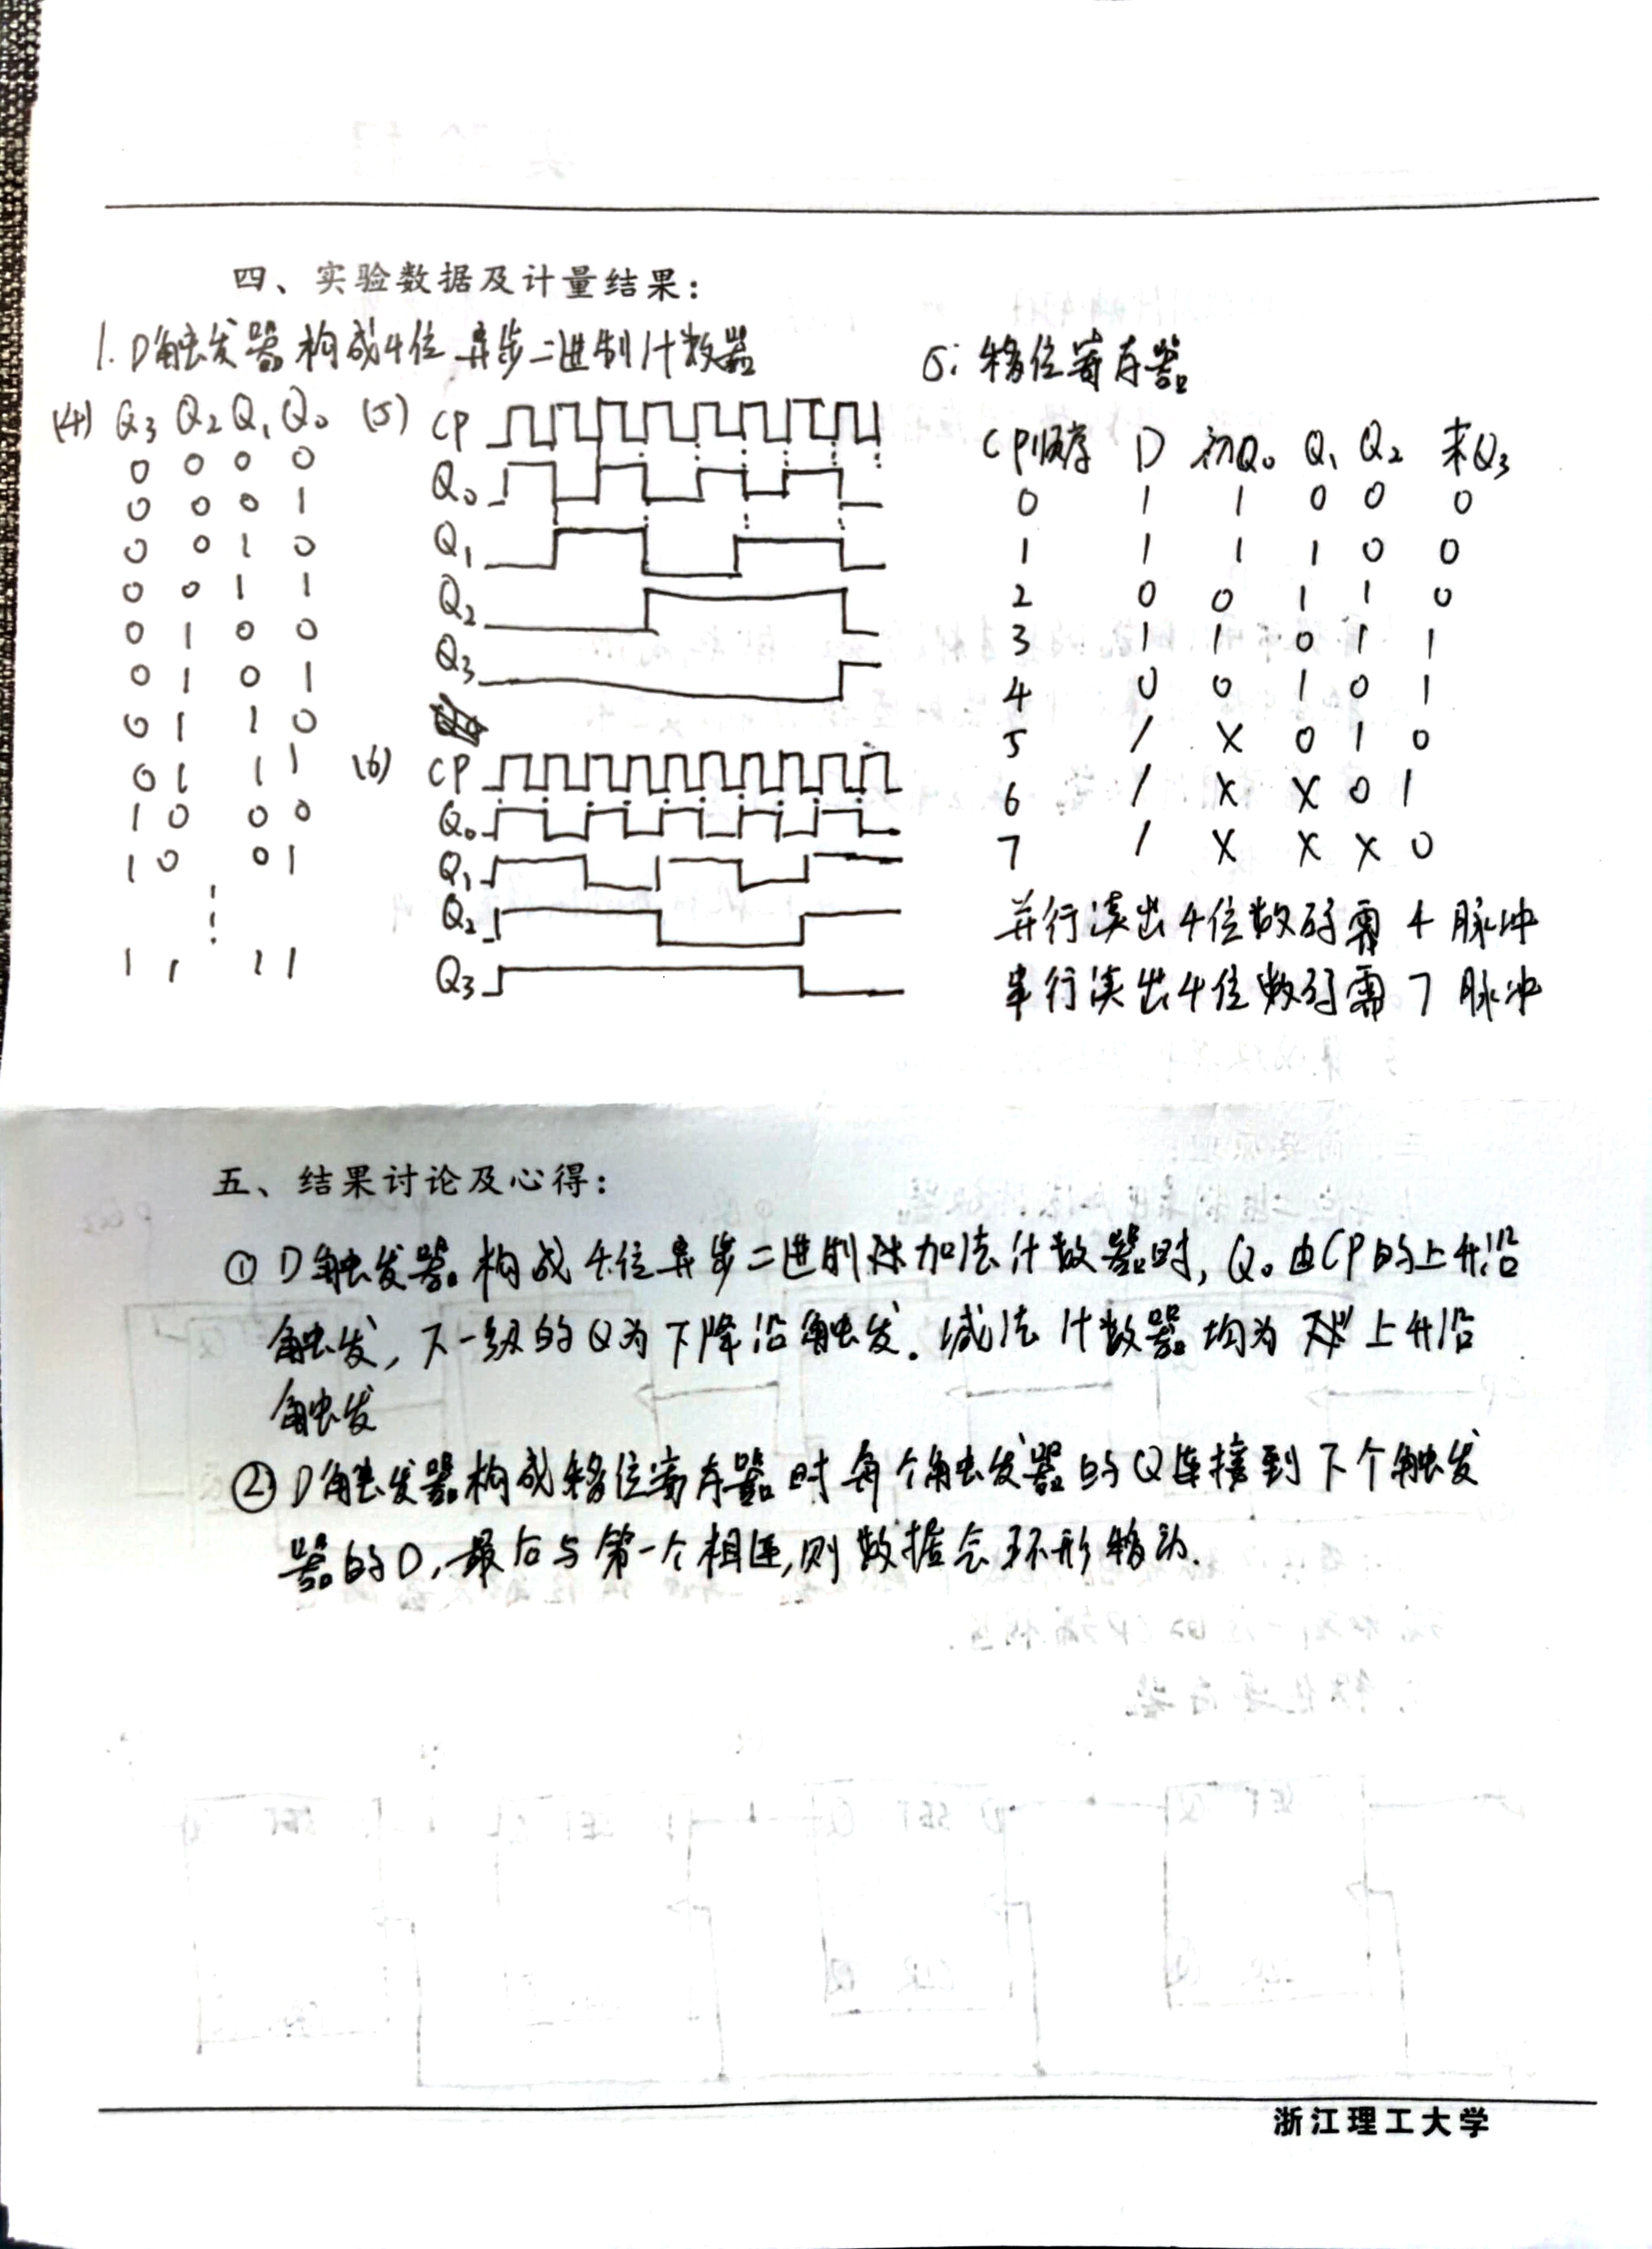 四、实验数据及计量结果:
1. D触发器构成4位异步二进制计数器
(4) Q3 Q2 Q1 Q0
0 0 0 0
0 0 0 1
0 0 1 0
0 0 1 1
0 1 0 0
0 1 0 1
0 1 1 0
0 1 1 1
1 0 0 0
1 0 0 1
⋮
1 1 1 1
(5) CP
Q0
Q1
Q2
Q3
(6) CP
Q0
Q1
Q2
Q3
5. 移位寄存器
CP顺序 D 初Q0 Q1 Q2 末Q3
0 1 1 0 0 0
1 1 1 1 0 0
2 0 0 1 1 0
3 1 1 0 1 1
4 0 0 1 0 1
5 / X 0 1 0
6 / X X 0 1
7 / X X X 0
并行读出4位数码需 4 脉冲
串行读出4位数码需 7 脉冲
五、结果讨论及心得:
① D触发器构成4位异步二进制加法计数器时, Q0由CP的上升沿
触发, 下一级的Q为下降沿触发. 减法计数器均为上升沿
触发
② D触发器构成移位寄存器时每个触发器的Q连接到下个触发
器的D, 最后与第一个相连, 则数据会环形移动.
浙江理工大学